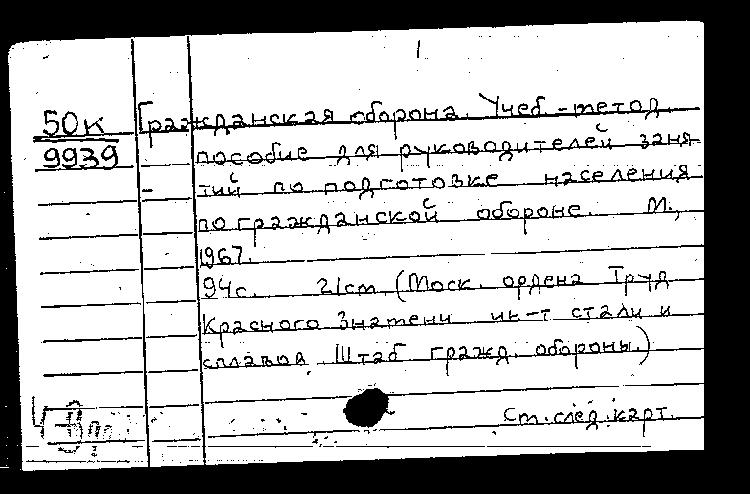 50к Гражданская оборона. Учеб-метод.
9939 пособие для руководителей заня
тий по подготовке населения
по гражданской обороне. М.,
1967.
94с. 21cm (Моск. ордена Труд
Красного Знамени ин-т стали и
сплавов Штаб гражд. обороны.)
См. след. карт.